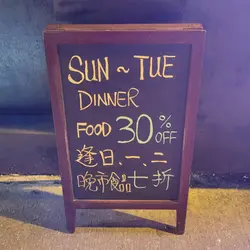 SUN ~ TUE
DINNER
FOOD 30% OFF
逢日、一、二
晚市食品七折